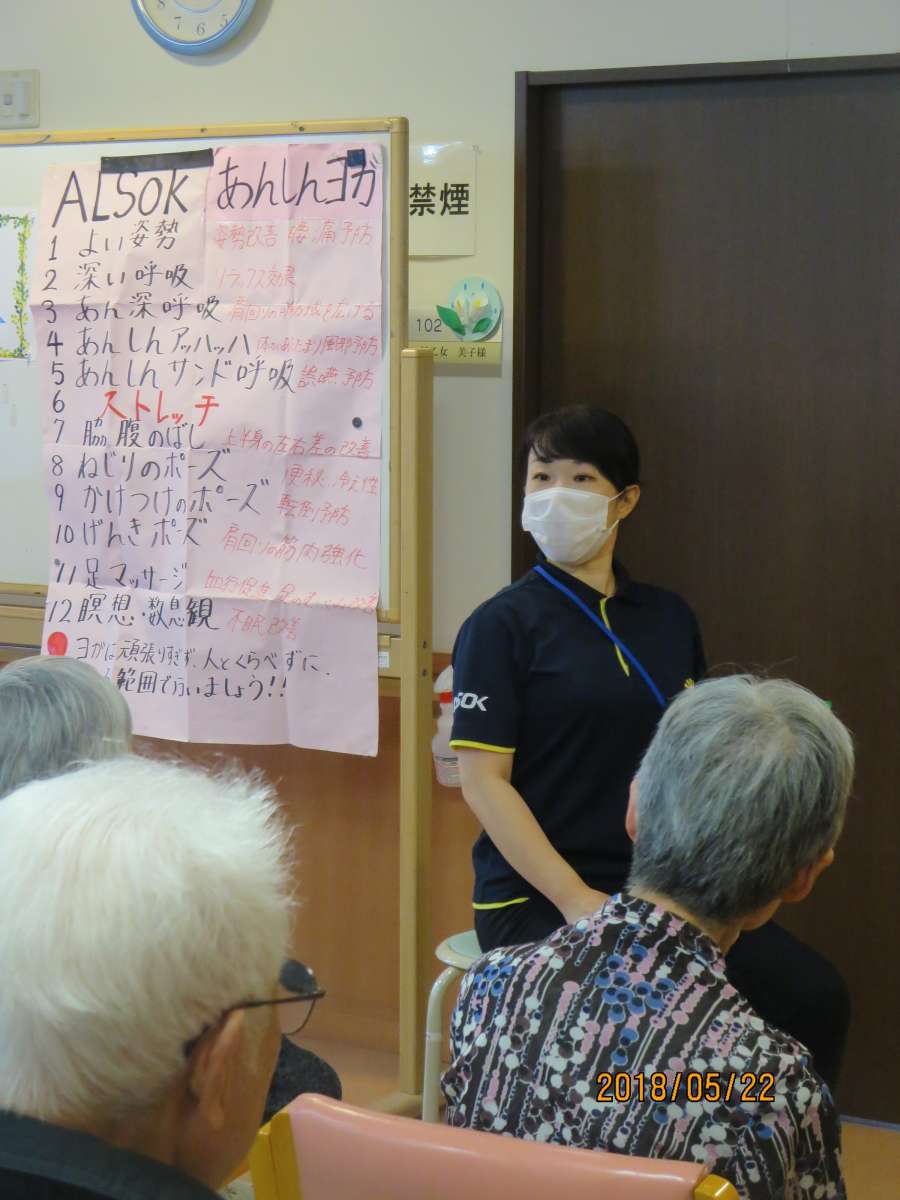 8 7 6 5
ALSOK あんしんヨガ
1 よい姿勢 姿勢改善 腰痛予防
2 深い呼吸 リラックス効果
3 あん深呼吸 肩回りの を広げる
4 あんしんアッハッハ 体があたたまり風邪予防
5 あんしんサンド呼吸 誤嚥予防
6 ストレッチ
7 脇腹のばし 上半身の左右差の改善
8 ねじりのポーズ 便秘、冷え性
9 かけつけのポーズ 転倒予防
10 げんきポーズ 肩回りの筋肉強化
11 足マッサージ 血行促進 足の
12 瞑想・数息観 不眠改善
ヨガは頑張りすぎず、人とくらべずに、
範囲で行いましょう!!
禁煙
102
乙女 美子様
SOK
2018/05/22